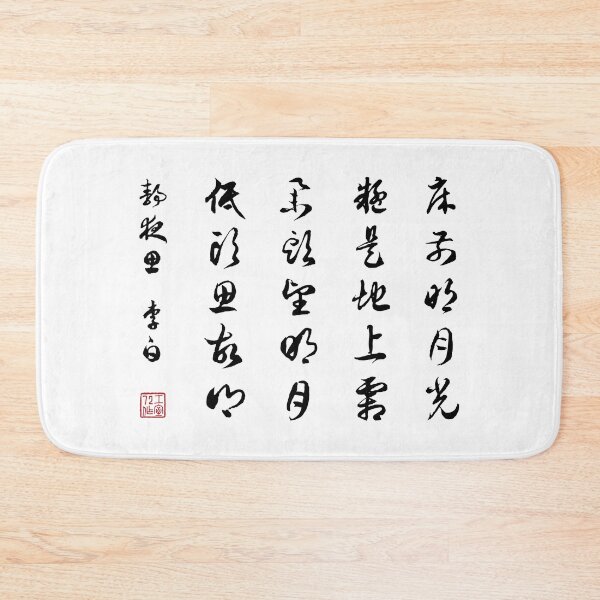 床前明月光
疑是地上霜
举头望明月
低头思故乡
静夜思 李白